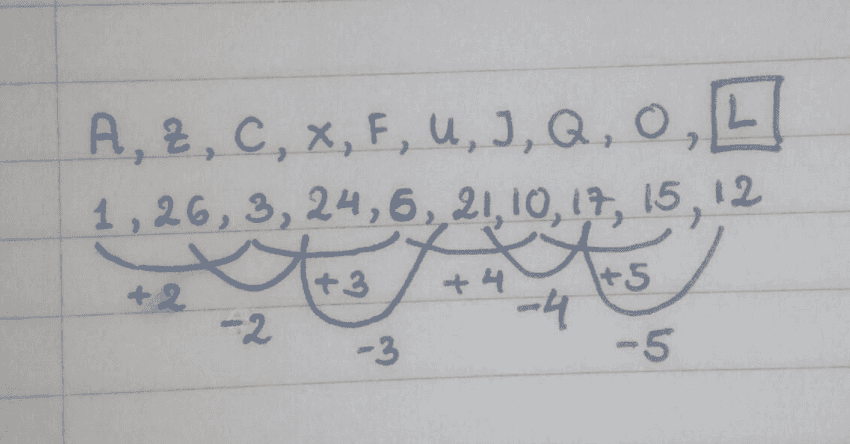 A, Z, C, X, F, U, J, Q, O, L
1, 26, 3, 24, 6, 21, 10, 17, 15, 12
+2 -2 +3 -3 +4 -4 +5 -5